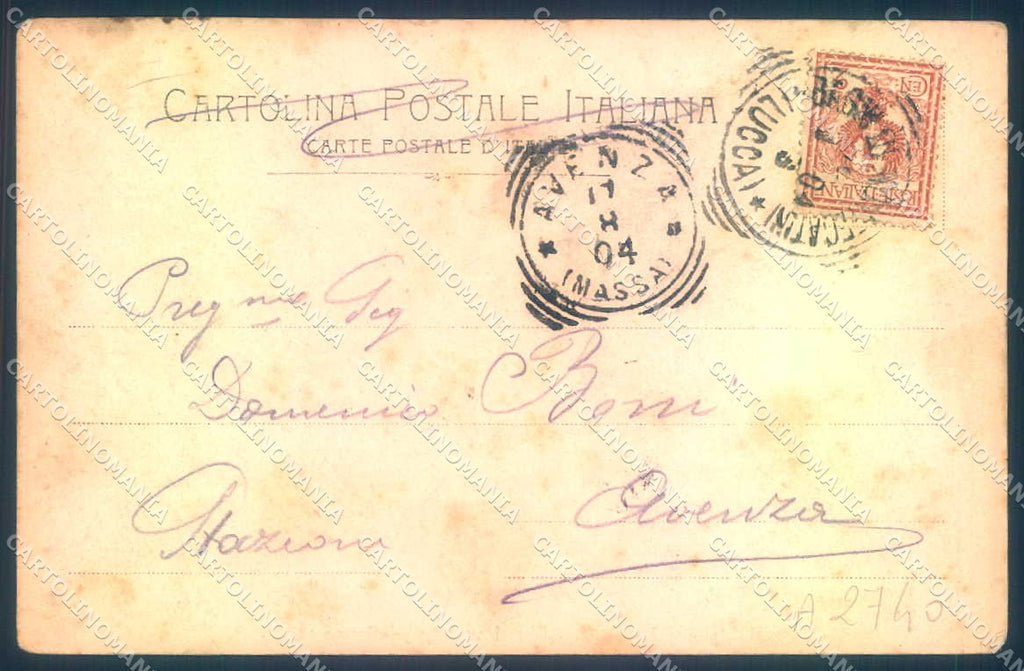 CARTOLINA POSTALE ITALIANA
CARTE POSTALE D'ITALIE
AVENZA
17
8
04
(MASSA)
(LUCCA)
Preg.mo Sig
Domenico Boni
Stazione
Avenza
A 2740
CARTOLINOMANIA